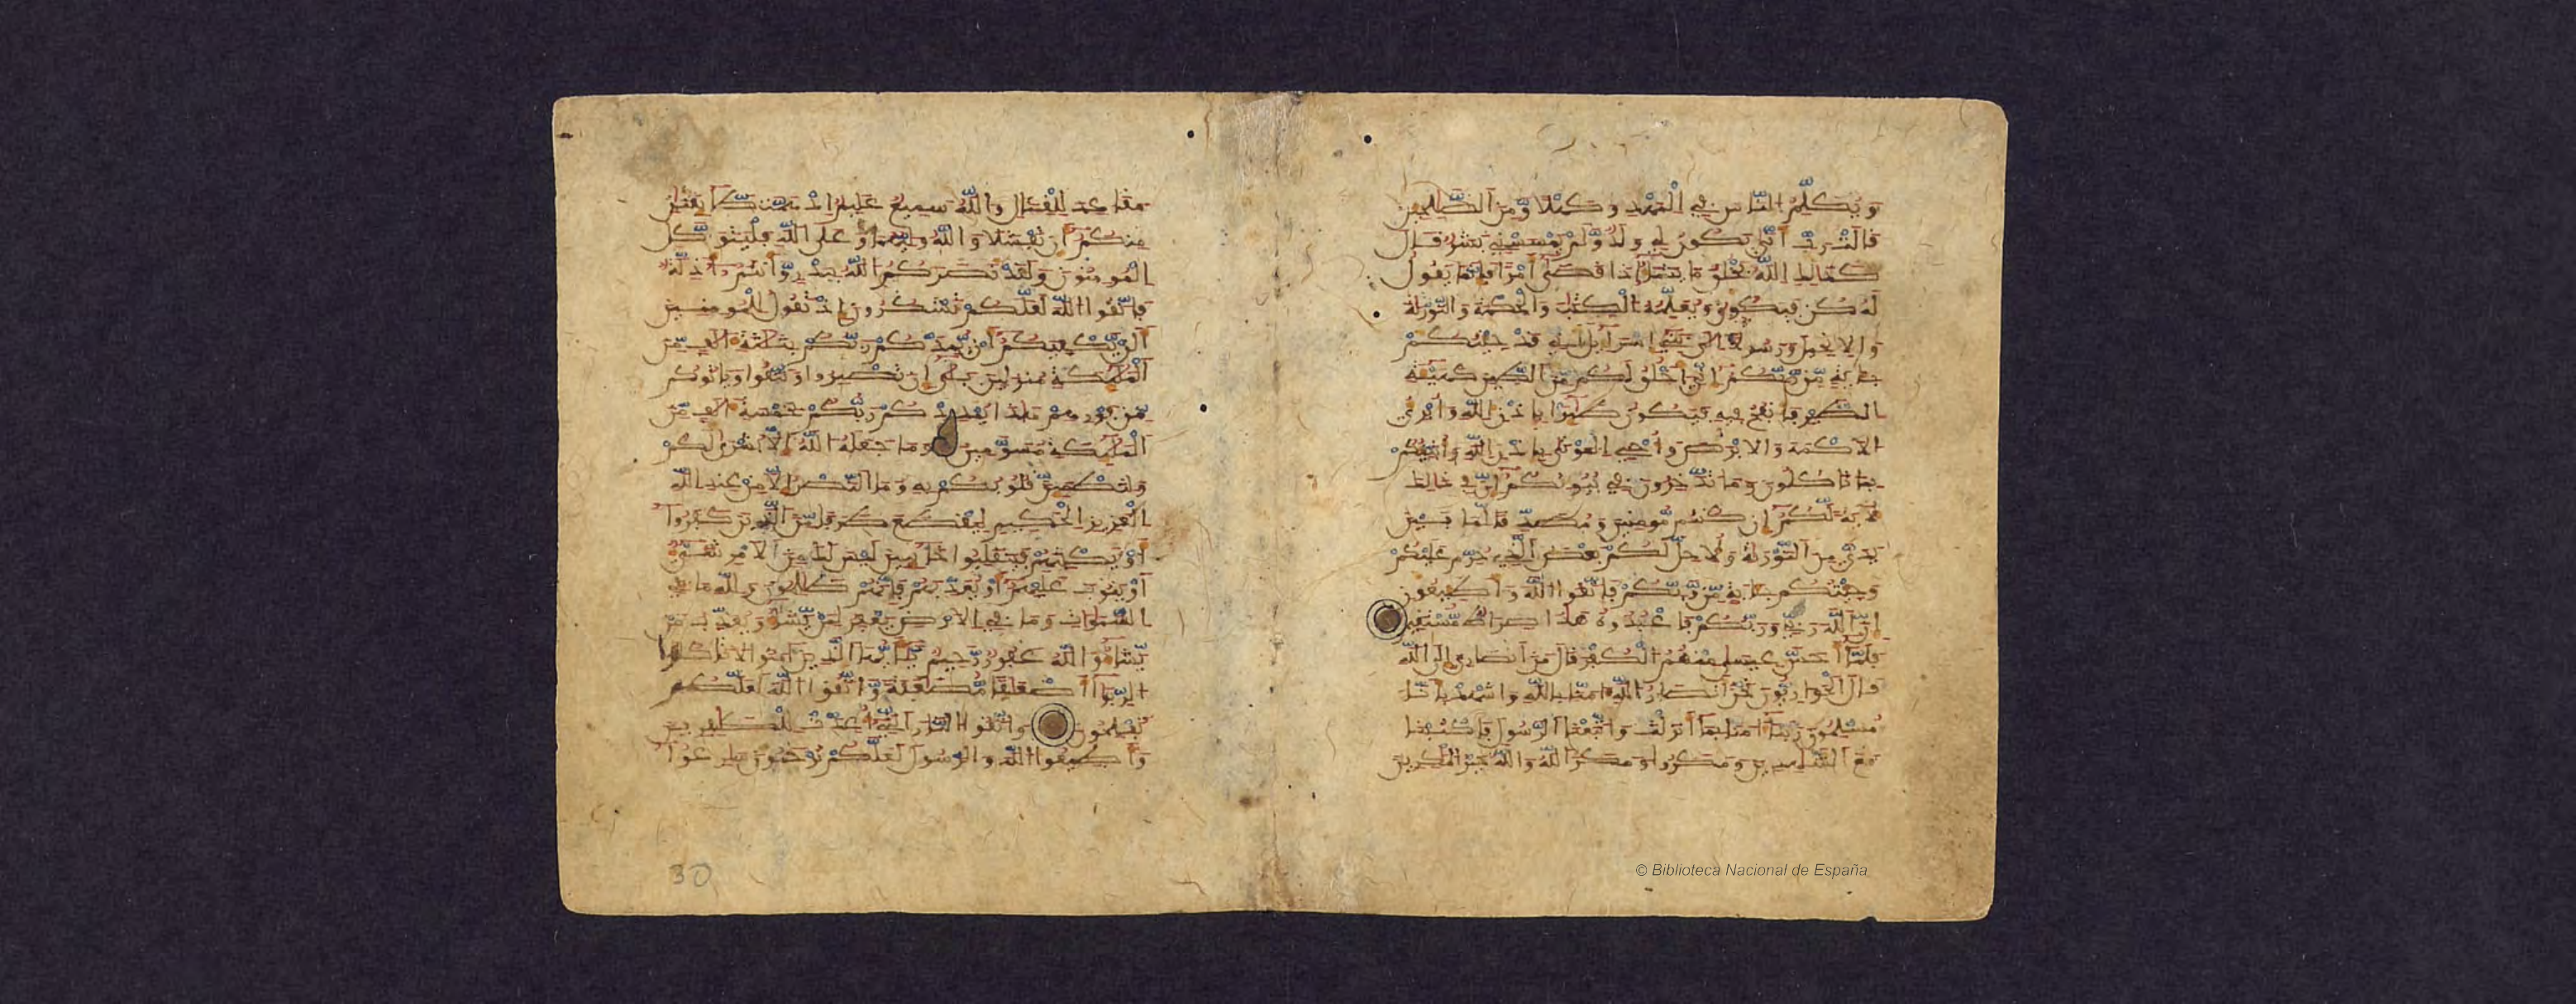 وَيُكَلِّمُ النَّاسَ فِي الْمَهْدِ وَكَهْلًا وَّمِنَ الصَّلِحِينَ
قَالَتْ رَبِّ أَنَّى يَكُونُ لِي وَلَدٌ وَلَمْ يَمْسَسْنِي بَشَرٌ قَالَ
كَذَالِكِ اللَّهُ يَخْلُقُ مَا يَشَاءُ إِذَا قَضَى أَمْرًا فَإِنَّمَا يَقُولُ
لَهُ كُن فَيَكُونُ وَيُعَلِّمُهُ الْكِتَبَ وَالْحِكْمَةَ وَالتَّوْرَاةَ
وَالْإِنجِيلَ وَرَسُولًا إِلَى بَنِي إِسْرَاءِيلَ أَنِّي قَدْ جِئْتُكُمْ
بِآيَةٍ مِّن رَّبِّكُمْ إِنِّي أَخْلُقُ لَكُم مِّنَ الطِّينِ كَهَيْئَةِ
الطَّيْرِ فَأَنفُخُ فِيهِ فَيَكُونُ طَائِرًا بِإِذْنِ اللَّهِ وَأُبْرِئُ
الْأَكْمَهَ وَالْأَبْرَصَ وَأُحْيِ الْمَوْتَى بِإِذْنِ اللَّهِ وَأُنَبِّئُكُم
بِمَا تَأْكُلُونَ وَمَا تَدَّخِرُونَ فِي بُيُوتِكُمْ إِنَّ فِي ذَالِكَ
لَآيَةً لَّكُمْ إِن كُنتُم مُّومِنِينَ وَمُصَدِّقًا لِّمَا بَيْنَ
يَدَيَّ مِنَ التَّوْرَاةِ وَلِأُحِلَّ لَكُم بَعْضَ الَّذِي حُرِّمَ عَلَيْكُمْ
وَجِئْتُكُم بِآيَةٍ مِّن رَّبِّكُمْ فَاتَّقُوا اللَّهَ وَأَطِيعُونِ
إِنَّ اللَّهَ رَبِّي وَرَبُّكُمْ فَاعْبُدُوهُ هَذَا صِرَاطٌ مُّسْتَقِيمٌ
فَلَمَّا أَحَسَّ عِيسَى مِنْهُمُ الْكُفْرَ قَالَ مَنْ أَنصَارِي إِلَى اللَّهِ
قَالَ الْحَوَارِيُّونَ نَحْنُ أَنصَارُ اللَّهِ آمَنَّا بِاللَّهِ وَاشْهَدْ بِأَنَّا
مُسْلِمُونَ رَبَّنَا آمَنَّا بِمَا أَنزَلْتَ وَاتَّبَعْنَا الرَّسُولَ فَاكْتُبْنَا
مَعَ الشَّهِدِينَ وَمَكَرُوا وَمَكَرَ اللَّهُ وَاللَّهُ خَيْرُ الْمَكِرِينَ
مَقَاعِدَ لِلْقِتَالِ وَاللَّهُ سَمِيعٌ عَلِيمٌ إِذْ هَمَّت طَّائِفَتَانِ
مِنكُمْ أَن تَفْشَلَا وَاللَّهُ وَلِيُّهُمَا وَعَلَى اللَّهِ فَلْيَتَوَكَّلِ
الْمُومِنُونَ وَلَقَدْ نَصَرَكُمُ اللَّهُ بِبَدْرٍ وَّأَنتُمْ أَذِلَّةٌ
فَاتَّقُوا اللَّهَ لَعَلَّكُمْ تَشْكُرُونَ إِذْ تَقُولُ لِلْمُومِنِينَ
أَلَن يَّكْفِيَكُمْ أَن يُّمِدَّكُمْ رَبُّكُم بِثَلَثَةِ آلَافٍ مِّنَ
الْمَلَئِكَةِ مُنزَلِينَ بَلَى إِن تَصْبِرُوا وَتَتَّقُوا وَيَاتُوكُم
مِّن فَوْرِهِمْ هَذَا يُمْدِدْكُمْ رَبُّكُم بِخَمْسَةِ آلَافٍ مِّنَ
الْمَلَئِكَةِ مُسَوَّمِينَ وَمَا جَعَلَهُ اللَّهُ إِلَّا بُشْرَى لَكُمْ
وَلِتَطْمَئِنَّ قُلُوبُكُم بِهِ وَمَا النَّصْرُ إِلَّا مِنْ عِندِ اللَّهِ
الْعَزِيزِ الْحَكِيمِ لِيَقْطَعَ طَرَفًا مِّنَ الَّذِينَ كَفَرُوا
أَوْ يَكْبِتَهُمْ فَيَنقَلِبُوا خَائِبِينَ لَيْسَ لَكَ مِنَ الْأَمْرِ شَيْءٌ
أَوْ يَتُوبَ عَلَيْهِمْ أَوْ يُعَذِّبَهُمْ فَإِنَّهُمْ ظَالِمُونَ وَلِلَّهِ مَا فِي
السَّمَوَاتِ وَمَا فِي الْأَرْضِ يَغْفِرُ لِمَن يَّشَاءُ وَيُعَذِّبُ مَن
يَّشَاءُ وَاللَّهُ غَفُورٌ رَّحِيمٌ يَأَيُّهَا الَّذِينَ آمَنُوا لَا تَاكُلُوا
الرِّبَوا أَضْعَافًا مُّضَاعَفَةً وَّاتَّقُوا اللَّهَ لَعَلَّكُمْ
تُفْلِحُونَ وَاتَّقُوا النَّارَ الَّتِي أُعِدَّتْ لِلْكَافِرِينَ
وَأَطِيعُوا اللَّهَ وَالرَّسُولَ لَعَلَّكُمْ تُرْحَمُونَ سَارِعُوا
30
© Biblioteca Nacional de España